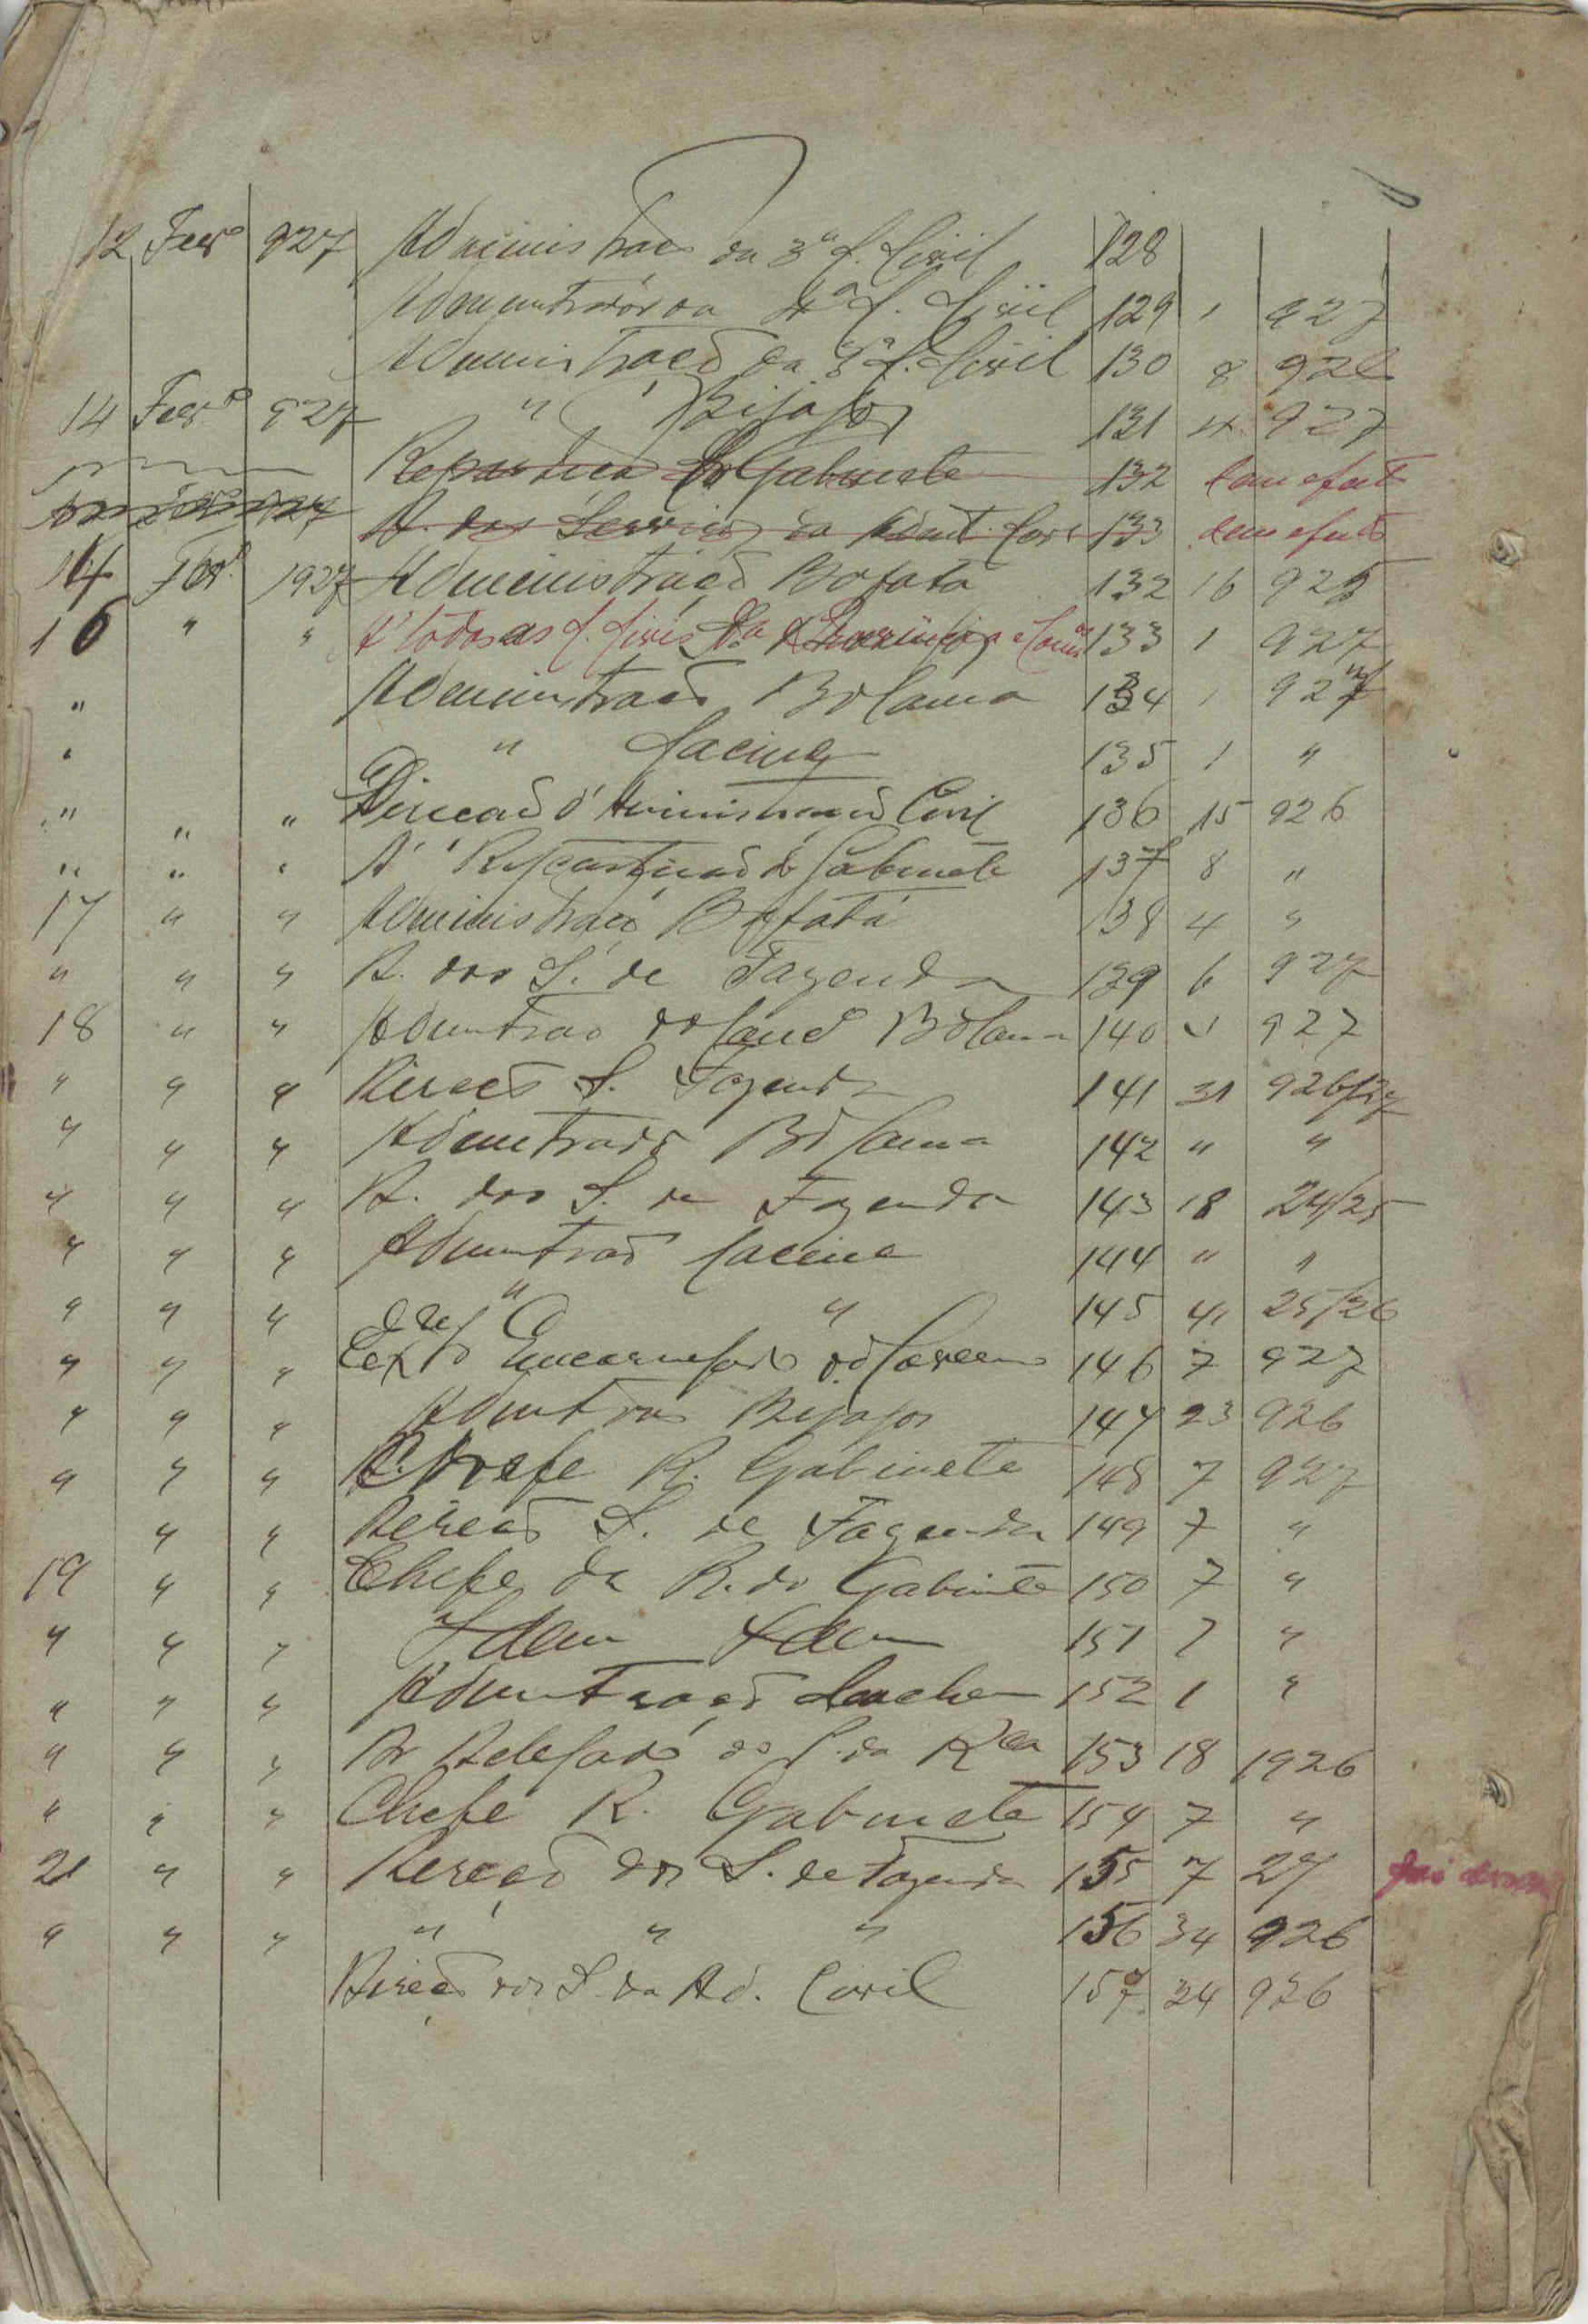 12 Fevº 927 Administração da 3ª C. Civil 128
Administrador da 4ª C. Civil 129 1 927
Administração da 3ª C. Civil 130 8 926
14 Fevº 927 " Bijagoz 131 4 927
Repartição do Gabinete 132 sem efeito
R. dos Serviços da Admt. Civil 133 sem efeito
14 Fevº 1927 Administração Bafatá 132 16 925
16 " " A' todas as C. Civis da Provincia e 133 1 927
" Administração Bolama 134 1 927
" " Cacine 135 1 "
" " " Direcção d'Administração Civil 136 15 926
" " " A' Repartição do Gabinete 137 8 "
17 " " Administração Bafatá 138 4 "
" " " R. dos S. de Fazenda 139 6 927
18 " " Admntrao Bolama 140 1 927
" " " Direcção S. Fazenda 141 31 926/27
" " " Admntrador Bolama 142 " "
" " " R. dos S. de Fazenda 143 18 24/25
" " " Admntrad Cacine 144 " "
" " " " " 145 4 25/26
" " " Encarregado 146 7 927
" " " Admntrao Bijagoz 147 23 926
" " " Chefe R. Gabinete 148 7 927
" " Direcção S. de Fazenda 149 7 "
19 " " Chefe da R. do Gabinete 150 7 "
" " " Idem Idem 151 7 "
" " " Admntração 152 1 "
" " " Delegado do P. da Rca 153 18 1926
" " " Chefe R. Gabinete 154 7 "
21 " " Direcção dos S. de Fazenda 155 7 27
" " " " " " 156 34 926
Direcção dos S. da Ad. Civil 157 24 926